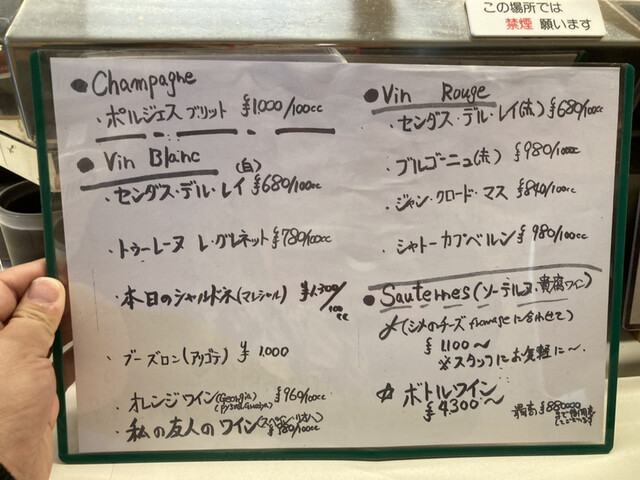 この場所では
禁煙 願います
● Champagne
・ポルジェス ブリット ¥1.000/100cc
● Vin Blainc (白)
・センダス・デル・レイ ¥680/100cc
・トゥーレーヌ レ・グルネット ¥780/100cc
・本日のシャルドネ(マレシャル) ¥1.300/100cc
・ブーズロン(アリゴテ) ¥1.000
・オレンジワイン (Georgia) ¥960/100cc
・私の友人のワイン ¥980/100cc
● Vin Rouge
・センダス・デル・レイ(赤) ¥680/100cc
・ブルゴーニュ(赤) ¥980/100cc
・ジャン・クロード・マス ¥840/100cc
・シャトーカプベルン ¥980/100cc
● Sauternes (ソーテルヌ・貴腐ワイン)
(シメのチーズ fromageに合わせて)
¥1.100〜
※スタッフにお気軽に〜.
☆ ボトルワイン
¥4.300〜
最高¥880000